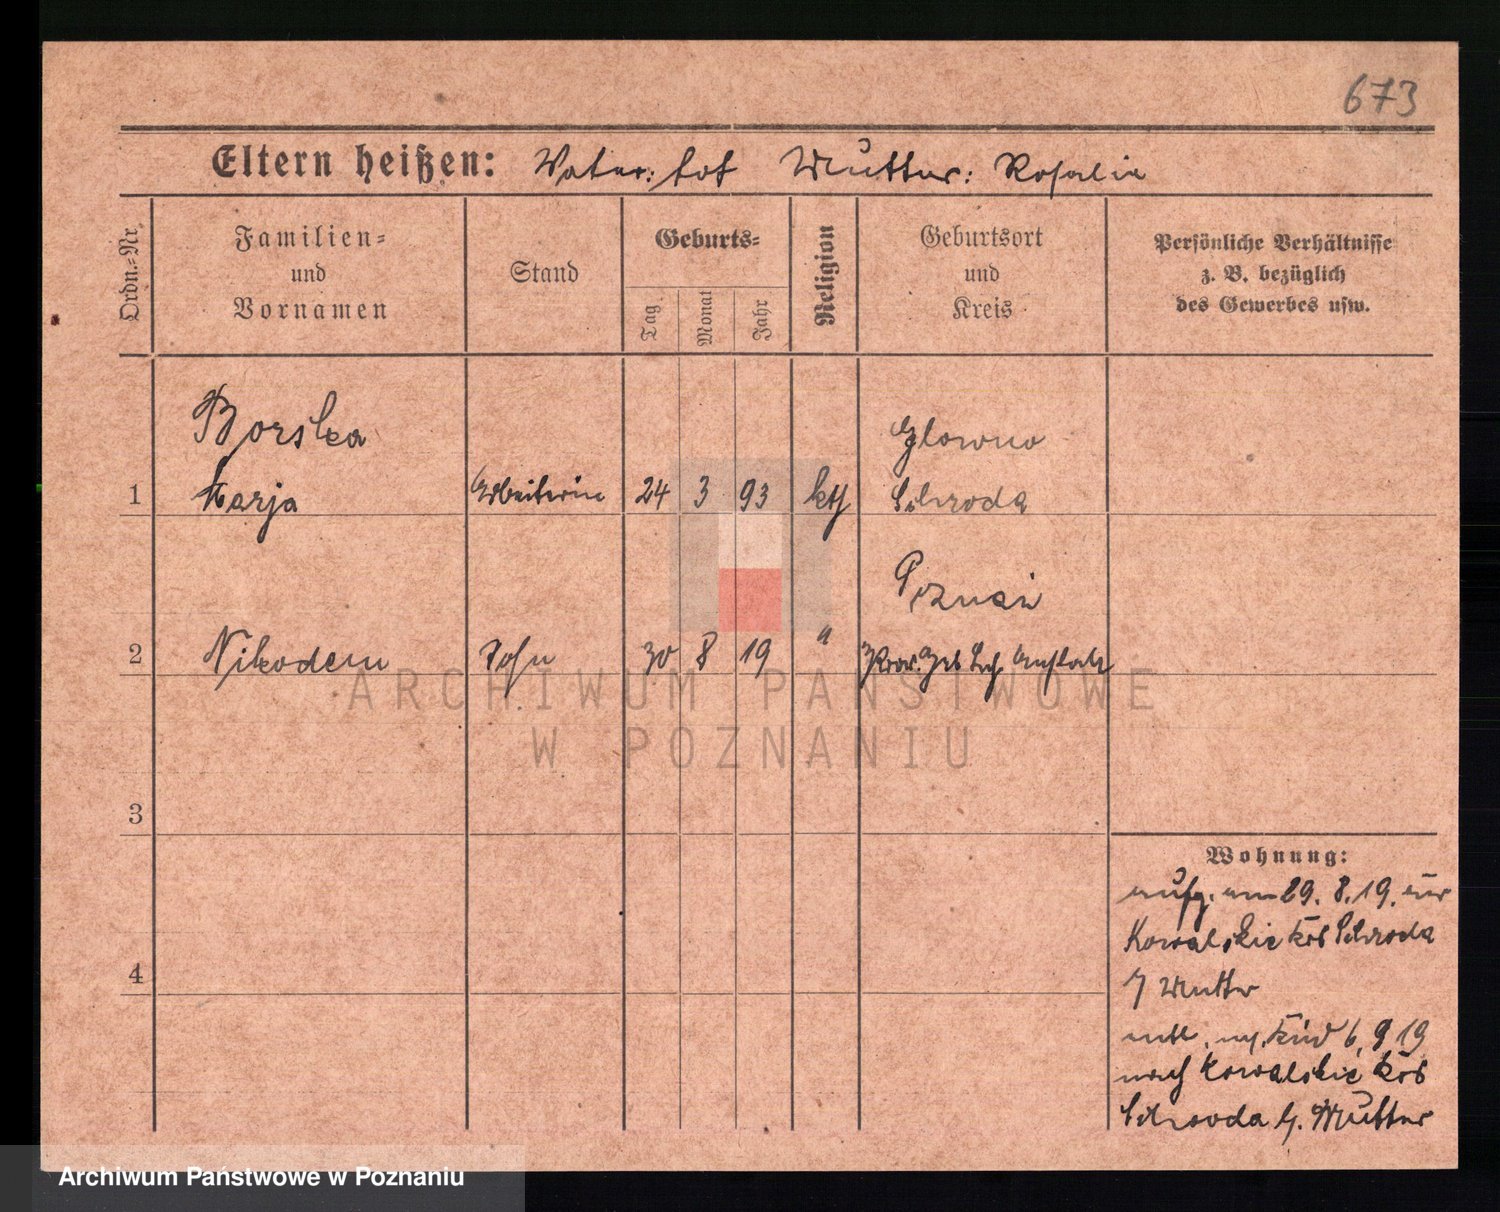 673
Eltern heißen: Vater: tot Mutter: Rosalia
Ordn.-Nr.
Familien-
und
Vornamen
Stand
Geburts-
Tag
Monat
Jahr
Religion
Geburtsort
und
Kreis
Persönliche Verhältnisse
z. B. bezüglich
des Gewerbes usw.
Borska
Glowno
1 Marja Arbeiterin 24 3 93 kth Schroda
Poznań
2 Nikodem Sohn 30 8 19 "
3
4
Wohnung:
aufg. am 29. 8. 19. aus
Kowalskie Krs Schroda
Mutter
entl. Kind 6. 9 19
nach Kowalskie Krs
Schroda b/. Mutter
ARCHIWUM PAŃSTWOWE
W POZNANIU
Archiwum Państwowe w Poznaniu